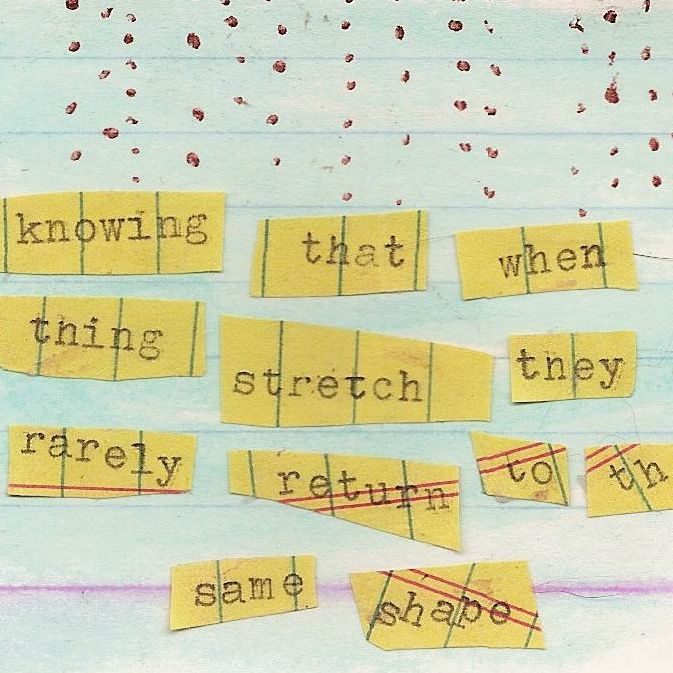 knowing that when
thing stretch they
rarely return to th
same shape